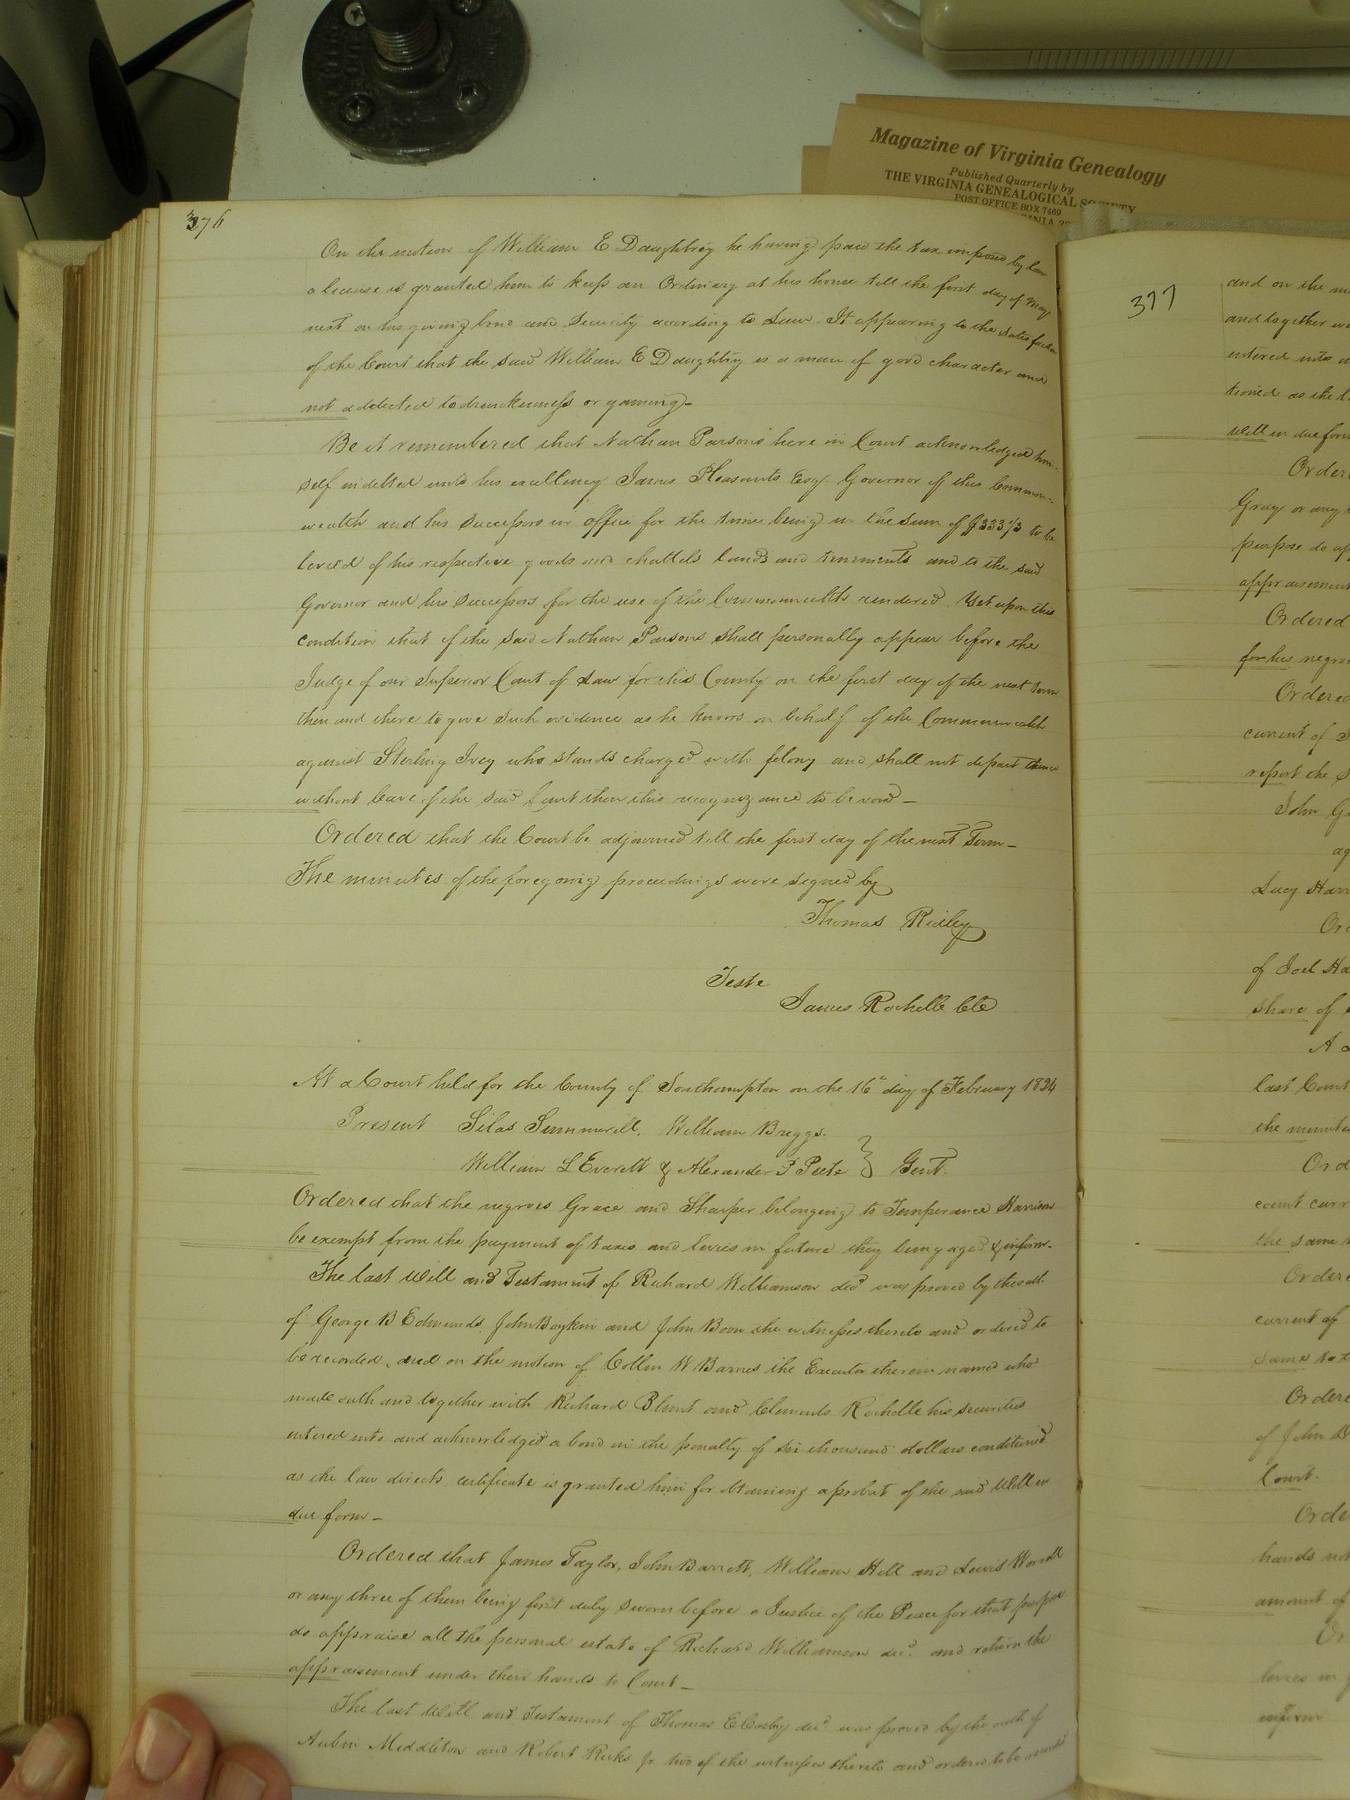 Magazine of Virginia Genealogy
Published Quarterly by
THE VIRGINIA GENEALOGICAL SOCIETY
POST OFFICE BOX 7469
376
On the motion of William E Daughtrey he having paid the tax imposed by law
a license is granted him to keep an Ordinary at his house till the first day of May
next on his giving bond and security according to Law. It appearing to the satisfaction
of the Court that the said William E Daughtry is a man of good character and
not addicted to drunkenness or gaming–
Be it remembered that Nathan Parsons here in Court acknowledged him-
self indebted unto his excellency James Pleasants Esqr Governor of this Common-
wealth and his Successors in office for the time being in the Sum of $333 1/3 to be
levied of his respective goods and chattels lands and tenements and to the said
Governor and his Successors for the use of the Commonwealth rendered. Yet upon this
condition that if the said Nathan Parsons shall personally appear before the
Judge of our Superior Court of Law for this County on the first day of the next term
then and there to give such evidence as he knows on behalf of the Commonwealth
against Sterling Ivey who stands charged with felony and shall not depart thence
without leave of the said Court then this recognizance to be void–
Ordered that the Court be adjourned till the first day of the next Term–
The minutes of the foregoing proceedings were signed by
Thomas Ridley
Teste
James Rochelle Clk
At a Court held for the County of Southampton on the 16th day of February 1824
Present Silas Summerill, William Briggs.
William L Everett & Alexander P Peete } Gent.
Ordered that the negroes Grace and Sharper belonging to Temperance Harrison
be exempt from the payment of taxes and levies in future they being aged & infirm.
The last Will and Testament of Richard Williamson decd was proved by the oath
of George B Edmunds, John Boykin and John Boon the witnesses thereto and ordered to
be recorded, and on the motion of Collin W Barnes the Executor therein named who
made oath and together with Richard Blunt and Clements Rochelle his securities
entered into and acknowledged a bond in the penalty of six thousand dollars conditioned
as the law directs, certificate is granted him for obtaining a probat of the said Will in
due form–
Ordered that James Taylor, John Barrett, William Hill and Lewis Worrell
or any three of them being first duly sworn before a Justice of the Peace for that purpose
do appraise all the personal estate of Richard Williamson decd. and return the
appraisement under their hands to Court–
The last Will and Testament of Thomas E Cosby decd was proved by the oath of
Aubin Middleton and Robert Ricks Jr two of the witnesses thereto and ordered to be recorded
377
and on the
and together
entered into
tioned as the
will in due form
Ordered
Gray or any
purpose do
appraisement
Ordered
for his negro
Ordered
current of
report the
John
Lucy
of Joel
share of
A
last Court
the minutes
Ord
count curr
the same
Ordered
current of
same to
Ordered
of John
Court.
Orde
hands
amount of
Or
levies in
infirm